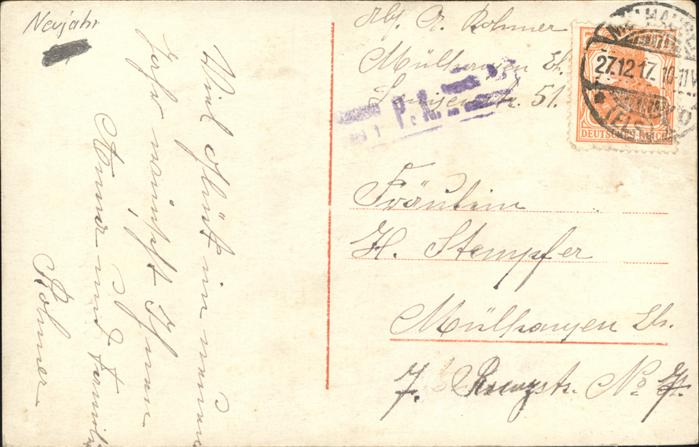 Neujahr
Viel Glück im neuen
Jahr wünscht Ihnen
Anna und Familie
Rohmer
Abs. A. Rohmer
Mülhausen Els.
51.
P.K.
MÜLHAUSEN
27.12.17. 10-11 V
(ELS.)
DEUTSCHES REICH
Fräulein
H. Stempfer
Mülhausen Els.
7. No 7.